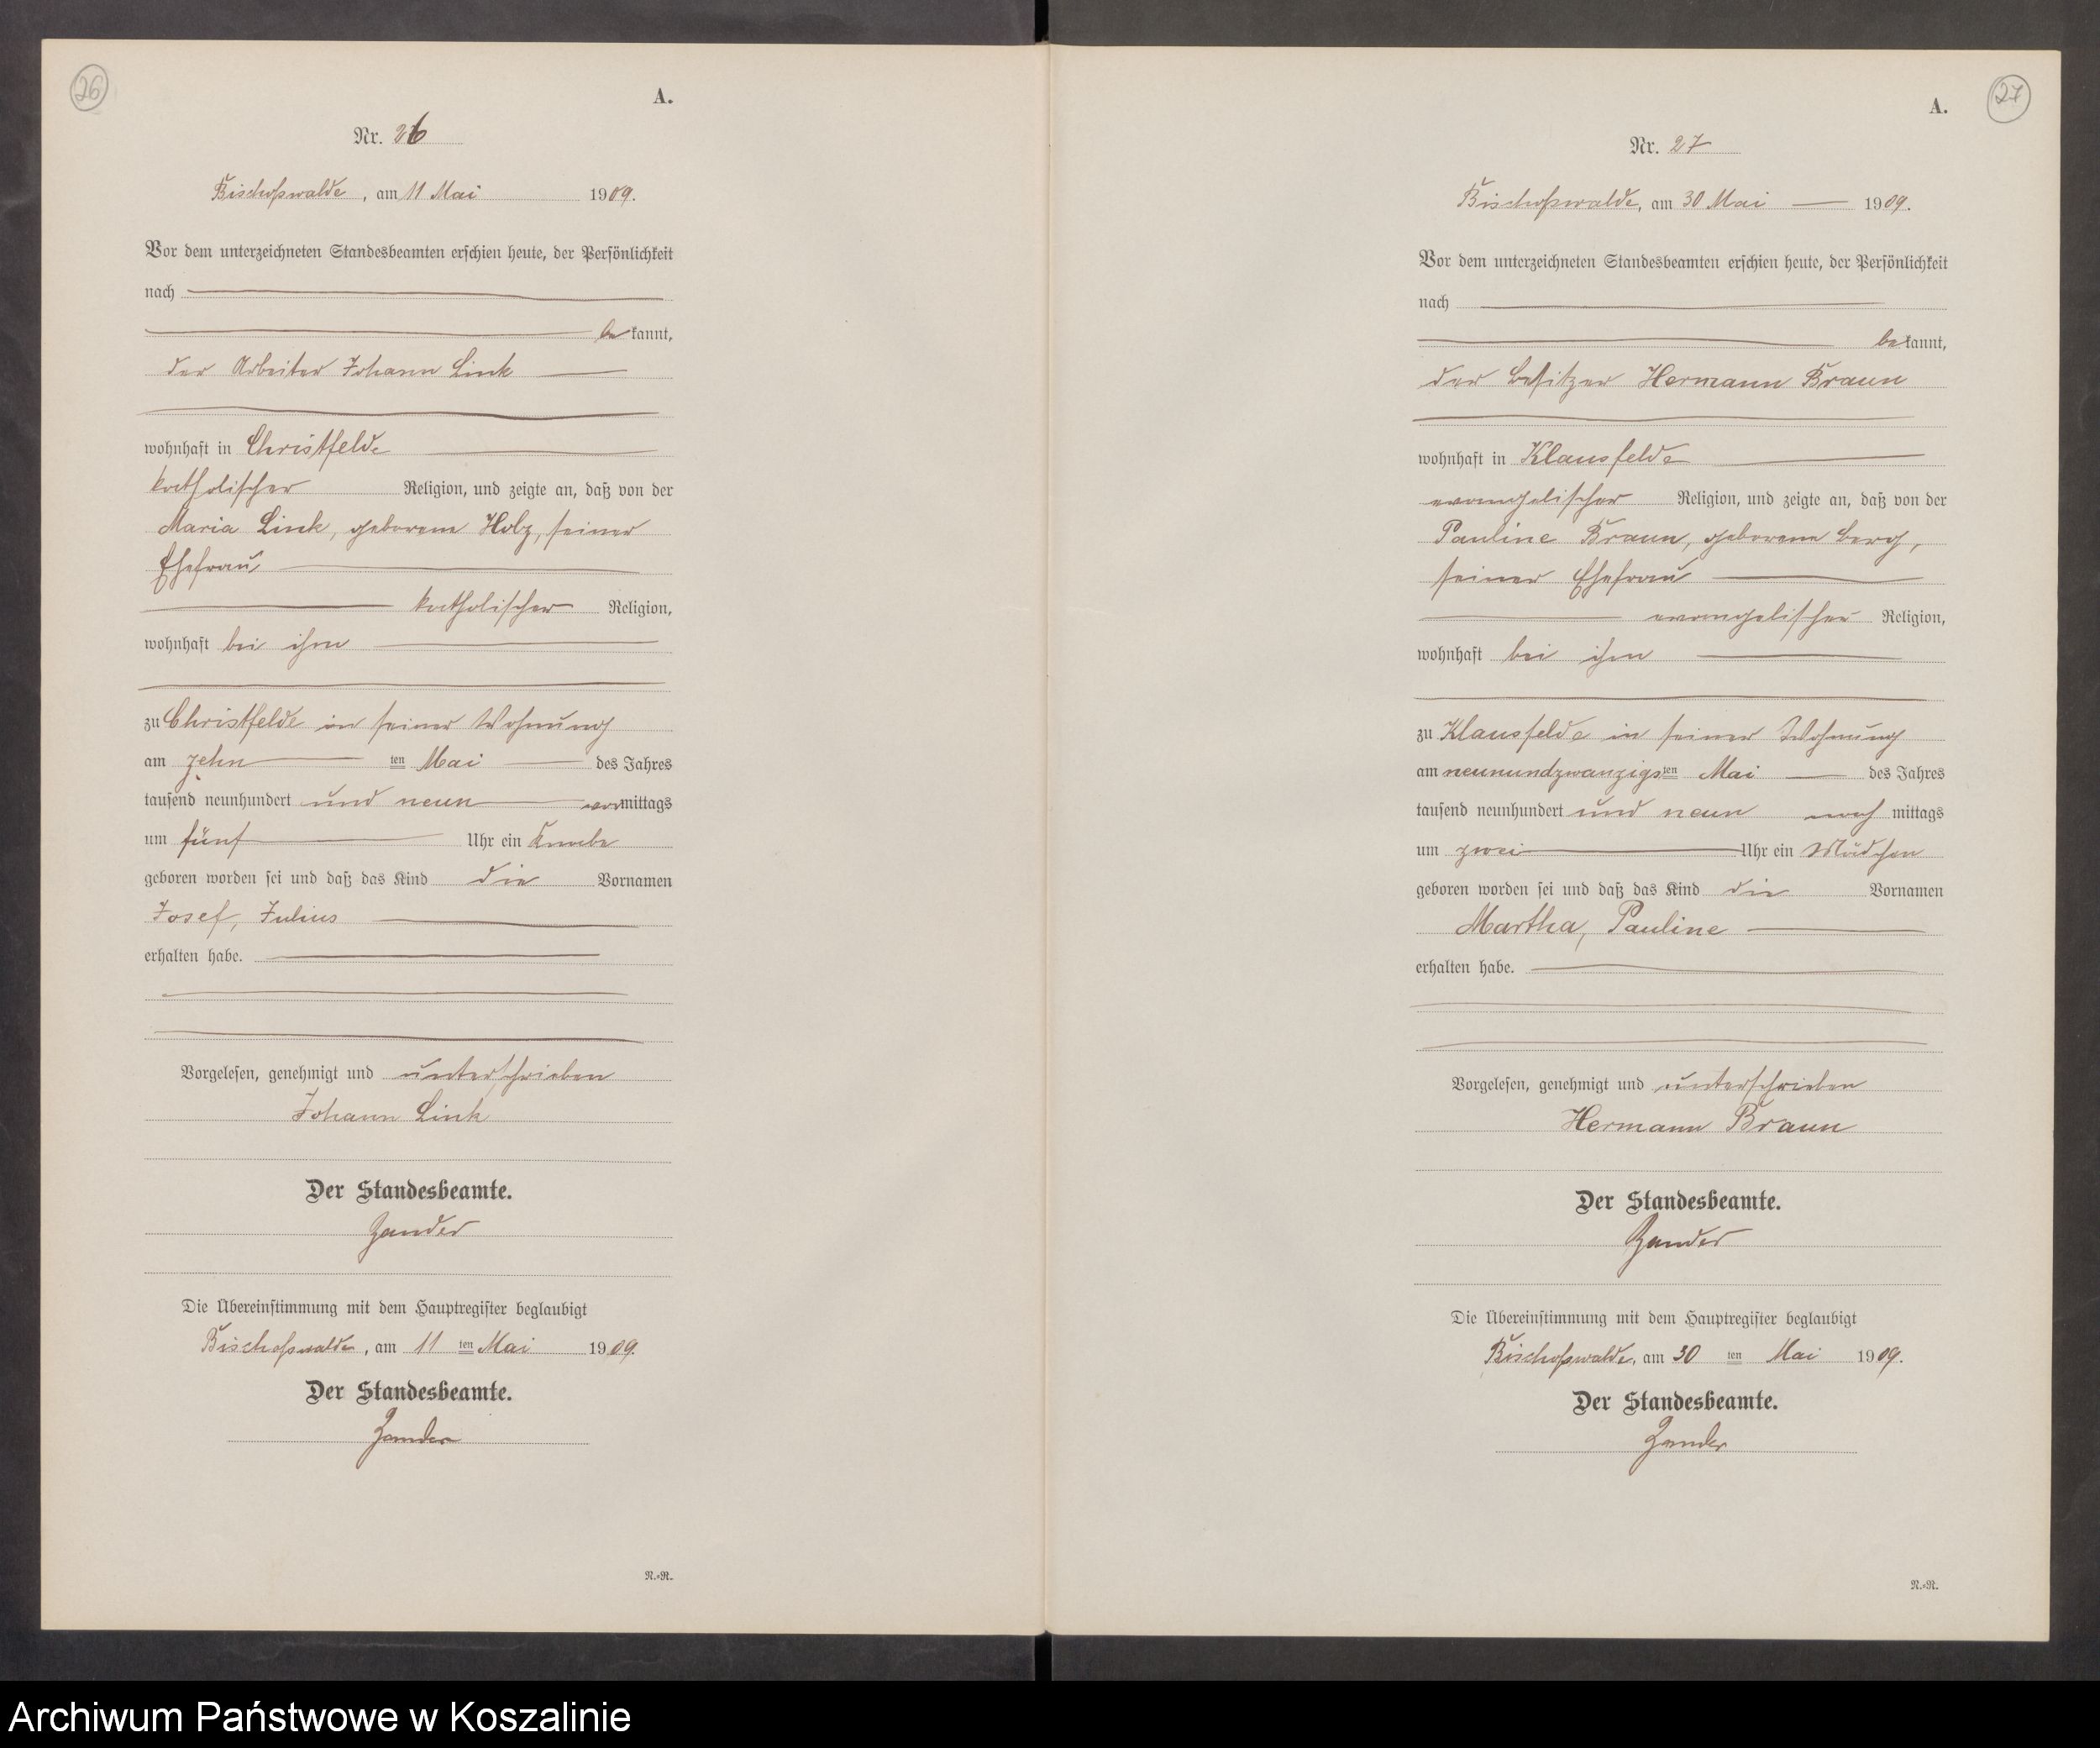 26
A.
Nr. 26
Bischofswalde, am 11 Mai 1909.
Vor dem unterzeichneten Standesbeamten erschien heute, der Persönlichkeit
nach
be kannt,
der Arbeiter Johann Link
wohnhaft in Christfelde
katholischer Religion, und zeigte an, daß von der
Maria Link, geborene Holz, seiner
Ehefrau
katholischer Religion,
wohnhaft bei ihm
zu Christfelde in seiner Wohnung
am zehn ten Mai des Jahres
tausend neunhundert und neun vormittags
um fünf Uhr ein Knabe
geboren worden sei und daß das Kind die Vornamen
Josef, Julius
erhalten habe.
Vorgelesen, genehmigt und unterschrieben
Johann Link
Der Standesbeamte.
Zander
Die Übereinstimmung mit dem Hauptregister beglaubigt
Bischofswalde, am 11 ten Mai 1909.
Der Standesbeamte.
Zander
N.=R.
27
A.
Nr. 27
Bischofswalde, am 30 Mai 1909.
Vor dem unterzeichneten Standesbeamten erschien heute, der Persönlichkeit
nach
bekannt,
der Besitzer Hermann Braun
wohnhaft in Klausfelde
evangelischer Religion, und zeigte an, daß von der
Pauline Braun, geborene Berg,
seiner Ehefrau
evangelischer Religion,
wohnhaft bei ihm
zu Klausfelde in seiner Wohnung
am neunundzwanzigsten Mai des Jahres
tausend neunhundert und neun nach mittags
um zwei Uhr ein Mädchen
geboren worden sei und daß das Kind die Vornamen
Martha, Pauline
erhalten habe.
Vorgelesen, genehmigt und unterschrieben
Hermann Braun
Der Standesbeamte.
Zander
Die Übereinstimmung mit dem Hauptregister beglaubigt
Bischofswalde, am 30 ten Mai 1909.
Der Standesbeamte.
Zander
N.=R.
Archiwum Państwowe w Koszalinie